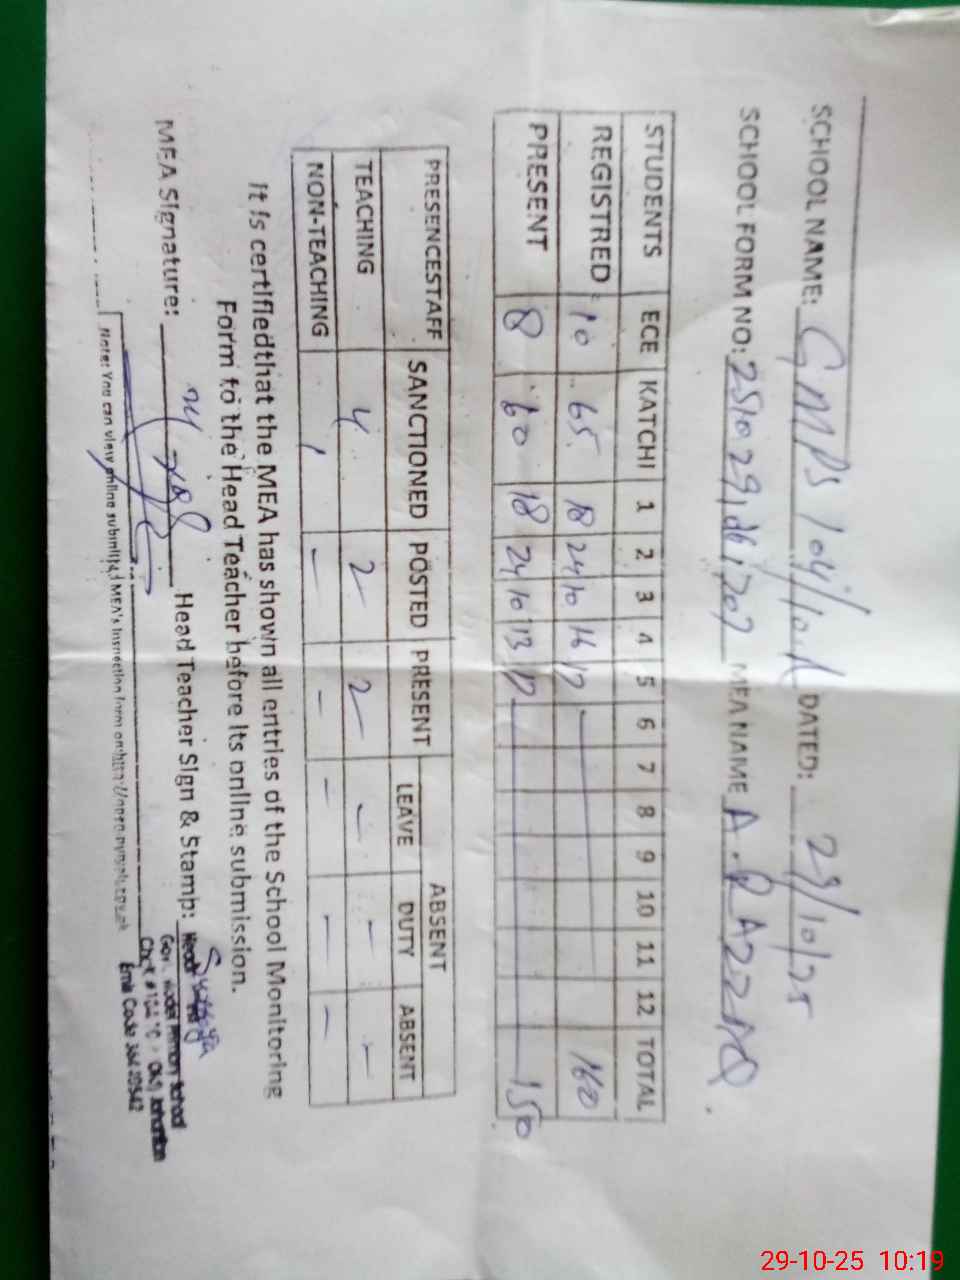 SCHOOL NAME: GMPS 104/10-R DATED: 29/10/25
SCHOOL FORM NO: MEA NAME A. RAZZAQ.
STUDENTS ECE KATCHI 1 2 3 4 5 6 7 8 9 10 11 12 TOTAL
REGISTRED 10 65 18 24 10 16 17 160
PRESENT 8 60 18 24 10 13 17 150
PRESENCESTAFF SANCTIONED POSTED PRESENT ABSENT
LEAVE DUTY ABSENT
TEACHING 4 2 2 - - -
NON-TEACHING 1 - - - - -
It is certifiedthat the MEA has shown all entries of the School Monitoring
Form to the Head Teacher before its online submission.
MEA Signature: Head Teacher Sign & Stamp:
Head
Govt. Model Primary School
Emis Code
Note: You can view online submitted MEA's Inspection form on
29-10-25 10:19